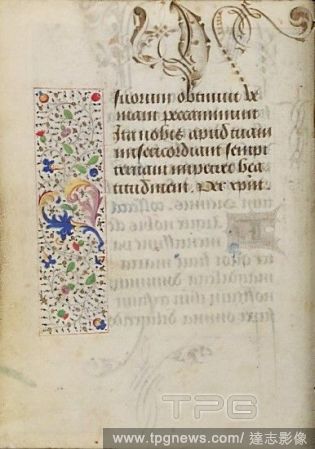 suorum obtinuit ve
niam peccaminum
Ita nobis apud tuam
misericordiam sempi
ternam impetret bea
titudinem. Per xpm.
TPG
www.tpgnews.com/ 達志影像